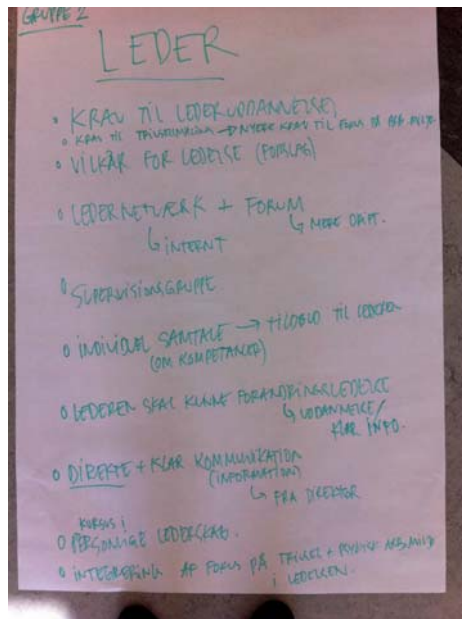 GRUPPE 2
LEDER
• KRAV TIL LEDERUDDANNELSE
• KRAV TIL TRIVSELSMÅLING → NYERE KRAV TIL FOKUS PÅ ARB.MILJØ.
• VILKÅR FOR LEDELSE (FORSLAG)
• LEDERNETVÆRK + FORUM
↳ INTERNT ↳ MERE DRIFT.
• SUPERVISIONSGRUPPE
• INDIVIDUEL SAMTALE → TILBUD TIL LEDEREN
(OM KOMPETANCER)
• LEDEREN SKAL KUNNE FORANDRINGSLEDELSE
↳ UDDANNELSE/
KLAR INFO.
• DIREKTE + KLAR KOMMUNIKATION
(INFORMATION)
↳ FRA DIREKTØR
KURSUS I
• PERSONLIGE LEDERSKAB.
• INTEGRERING AF FOKUS PÅ TRIVSEL + PSYKISK ARB.MILJØ
I LEDELSEN.